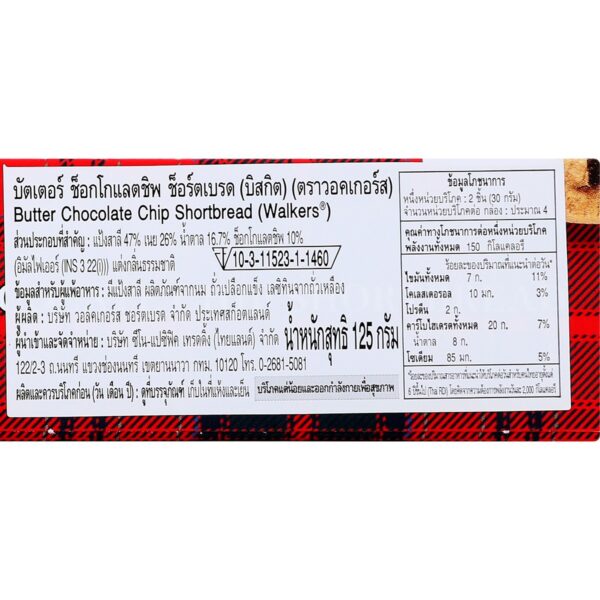 บัตเตอร์ ช็อกโกแลตชิพ ช็อร์ตเบรด (บิสกิต) (ตราวอคเกอร์ส)
Butter Chocolate Chip Shortbread (Walkers®)
ส่วนประกอบที่สำคัญ : แป้งสาลี 47% เนย 26% น้ำตาล 16.7% ช็อกโกแลตชิพ 10%
(อิมัลไฟเออร์ (INS 3 22(i))) แต่งกลิ่นธรรมชาติ
10-3-11523-1-1460
ข้อมูลสำหรับผู้แพ้อาหาร : มีแป้งสาลี ผลิตภัณฑ์จากนม ถั่วเปลือกแข็ง เลซิทินจากถั่วเหลือง
ผู้ผลิต : บริษัท วอล์คเกอร์ส ชอร์ตเบรด จำกัด ประเทศสก็อตแลนด์
ผู้นำเข้าและจัดจำหน่าย : บริษัท ซีโน-แปซิฟิค เทรดดิ้ง (ไทยแลนด์) จำกัด
122/2-3 ถ.นนทรี แขวงช่องนนทรี เขตยานนาวา กทม. 10120 โทร. 0-2681-5081
น้ำหนักสุทธิ 125 กรัม
ผลิตและควรบริโภคก่อน (วัน เดือน ปี) : ดูที่บรรจุภัณฑ์ เก็บในที่แห้งและเย็น
บริโภคแต่น้อยและออกกำลังกายเพื่อสุขภาพ
ข้อมูลโภชนาการ
หนึ่งหน่วยบริโภค : 2 ชิ้น (30 กรัม)
จำนวนหน่วยบริโภคต่อ กล่อง : ประมาณ 4
คุณค่าทางโภชนาการต่อหนึ่งหน่วยบริโภค
พลังงานทั้งหมด 150 กิโลแคลอรี
ร้อยละของปริมาณที่แนะนำต่อวัน*
ไขมันทั้งหมด 7 ก. 11%
โคเลสเตอรอล 10 มก. 3%
โปรตีน 2 ก.
คาร์โบไฮเดรตทั้งหมด 20 ก. 7%
น้ำตาล 8 ก.
โซเดียม 85 มก. 5%
*ร้อยละของปริมาณสารอาหารที่แนะนำให้บริโภคต่อวันสำหรับคนไทยอายุตั้งแต่
6 ปีขึ้นไป (Thai RDI) โดยคิดจากความต้องการพลังงานวันละ 2,000 กิโลแคลอรี